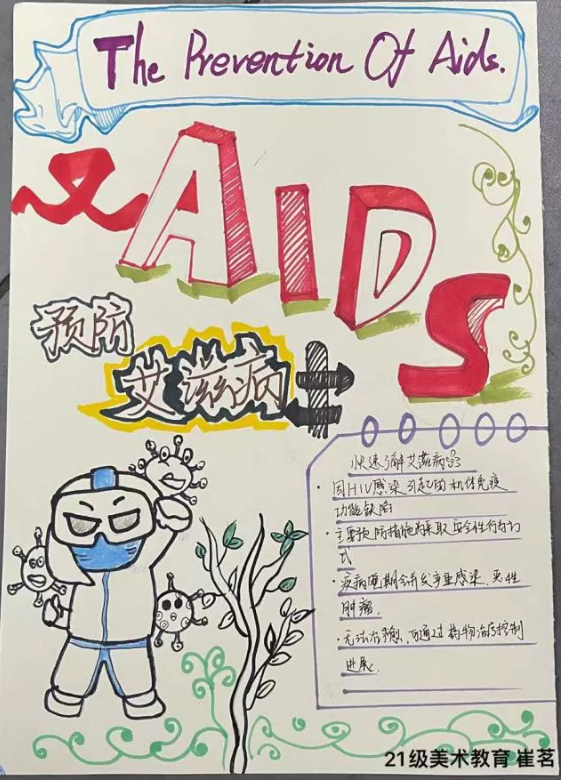 The Prevention Of Aids.
AIDS
预防
艾滋病
快速了解艾滋病
· 因HIV感染引起的机体免疫
功能缺陷
· 主要预防措施为采取安全性行为方
式
· 疾病晚期会并发严重感染、恶性
肿瘤.
· 无法治愈, 可通过药物治疗控制
进展.
21级美术教育 崔茗